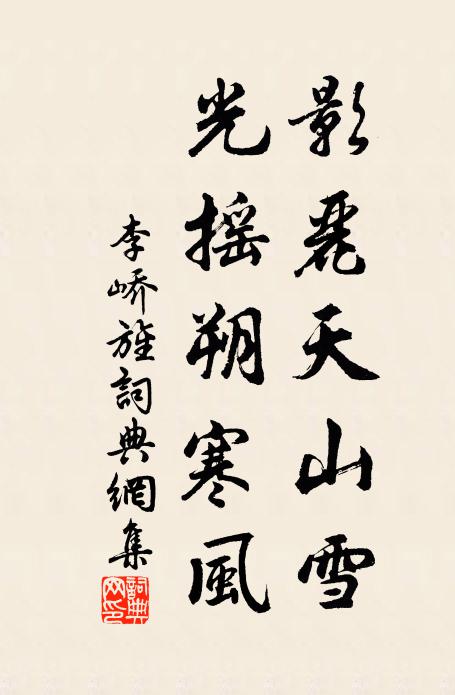 影麗天山雪
光搖朔寒風
李嶠旌詞典網集
詞典网印